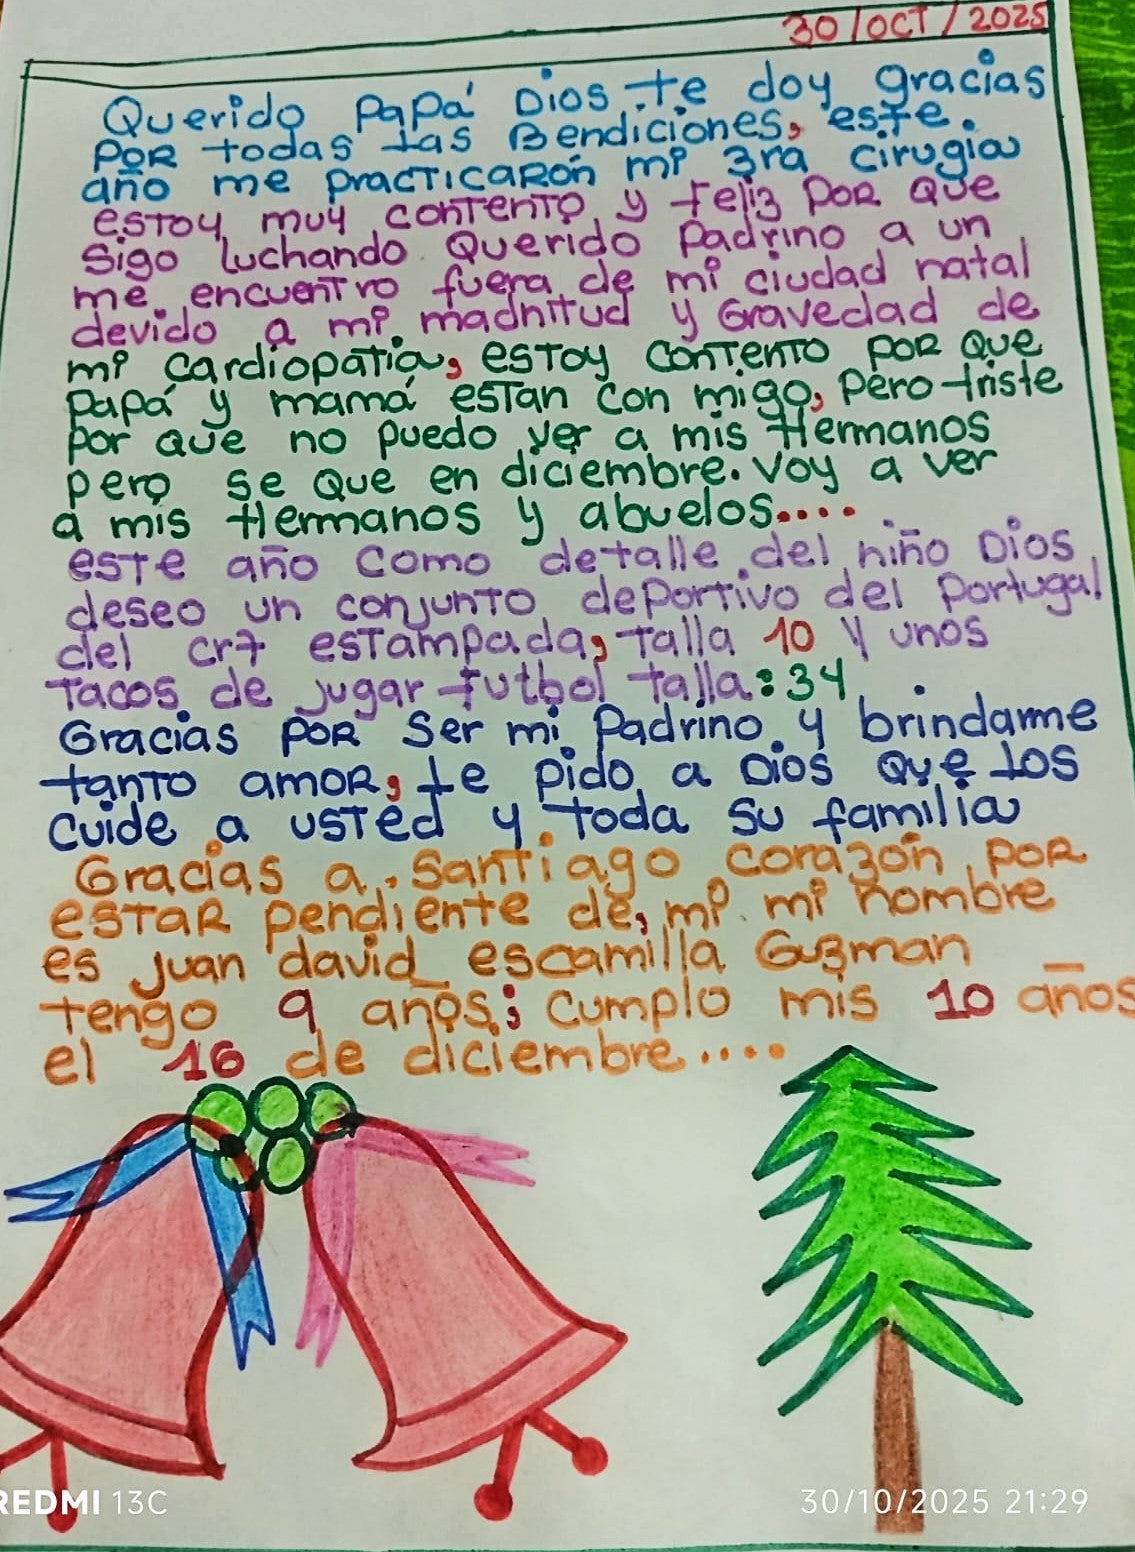 30/OCT/2025
Querido Papá Dios te doy gracias
POR todas las Bendiciones, este.
año me practicaRón mi 3ra cirugia
esToy muy contento y feliz POR Que
sigo luchando Querido Padrino a un
me encuentro fuera de mi ciudad natal
devido a mi madnitud y Gravedad de
mi cardiopatia, esToy conTenTo poR Que
papá y mamá esTan con migo, pero triste
por Que no puedo ver a mis Hermanos
pero se Que en diciembre. voy a ver
a mis Hermanos y abuelos....
esTe año como detalle del niño Dios
deseo un conjunTo deporTivo del Portugal
del cr7 esTampada, Talla 10 y unos
Tacos de jugar futbol talla:34
Gracias POR Ser mi Padrino y brindarme
tanTo amoR, te pido a Dios Que los
cuide a usTed y Toda su familia
Gracias a. SanTiago corazón POR
esTaR pendiente de, mi mi nombre
es juan david escamilla Guzman
tengo 9 años; cumplo mis 10 años
el 16 de diciembre....
REDMI 13C
30/10/2025 21:29